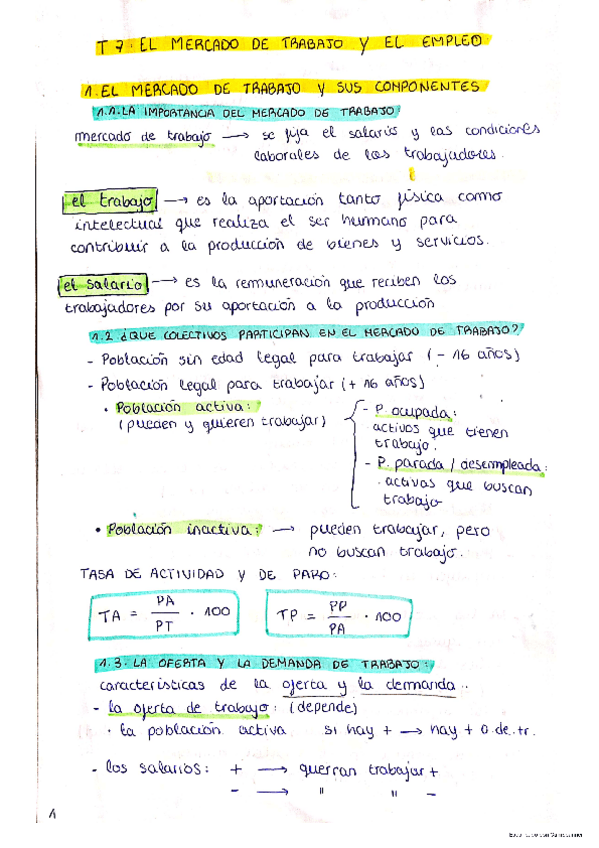 T 7. EL MERCADO DE TRABAJO Y EL EMPLEO
1. EL MERCADO DE TRABAJO Y SUS COMPONENTES
1.1. LA IMPORTANCIA DEL MERCADO DE TRABAJO:
mercado de trabajo → se fija el salario y las condiciones
laborales de los trabajadores.
el trabajo → es la aportación tanto física como
intelectual que realiza el ser humano para
contribuir a la producción de bienes y servicios.
el salario → es la remuneración que reciben los
trabajadores por su aportación a la producción
1.2 ¿QUE COLECTIVOS PARTICIPAN EN EL MERCADO DE TRABAJO?
- Población sin edad legal para trabajar (- 16 años)
- Población legal para trabajar (+ 16 años)
• Población activa:
(pueden y quieren trabajar)
- P. ocupada:
activos que tienen
trabajo.
- P. parada / desempleada:
activas que buscan
trabajo
• Población inactiva: → pueden trabajar, pero
no buscan trabajo.
TASA DE ACTIVIDAD Y DE PARO:
TA = PA / PT · 100
TP = PP / PA · 100
1.3. LA OFERTA Y LA DEMANDA DE TRABAJO:
características de la oferta y la demanda..
- la oferta de trabajo: (depende)
· la población activa si hay + → hay + o.de.tr.
- los salarios: + → querran trabajar +
- → " " -
1